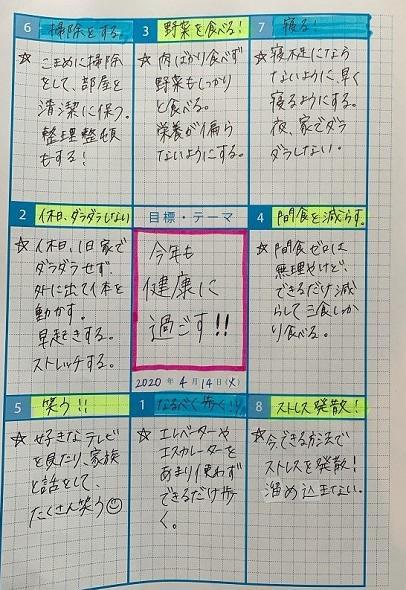 6 掃除をする。
☆ こまめに掃除
をして、部屋を
清潔に保つ。
整理整頓
もする!
3 野菜を食べる!
☆ 肉ばかり食べず
野菜もしっかり
と食べる。
栄養が偏ら
ないようにする。
7 寝る!
☆ 寝不足になら
ないように、早く
寝るようにする。
夜、家でダラ
ダラしない。
2 休日、ダラダラしない
☆ 休日、1日家で
ダラダラせず、
外に出て体を
動かす。
早起きする。
ストレッチする。
目標・テーマ
今年も
健康に
過ごす!!
2020年4月14日(火)
4 間食を減らす。
☆ 間食ゼロは
無理やけど、
できるだけ減
らして三食しっか
り食べる。
5 笑う!!
☆ 好きなテレビ
を見たり、家族
と話をして、
たくさん笑う☺
1 なるべく歩く!!
☆ エレベーターや
エスカレーターを
あまり使わず
できるだけ歩
く。
8 ストレス発散!
☆ 今、できる方法で
ストレスを発散!
溜め込まない。